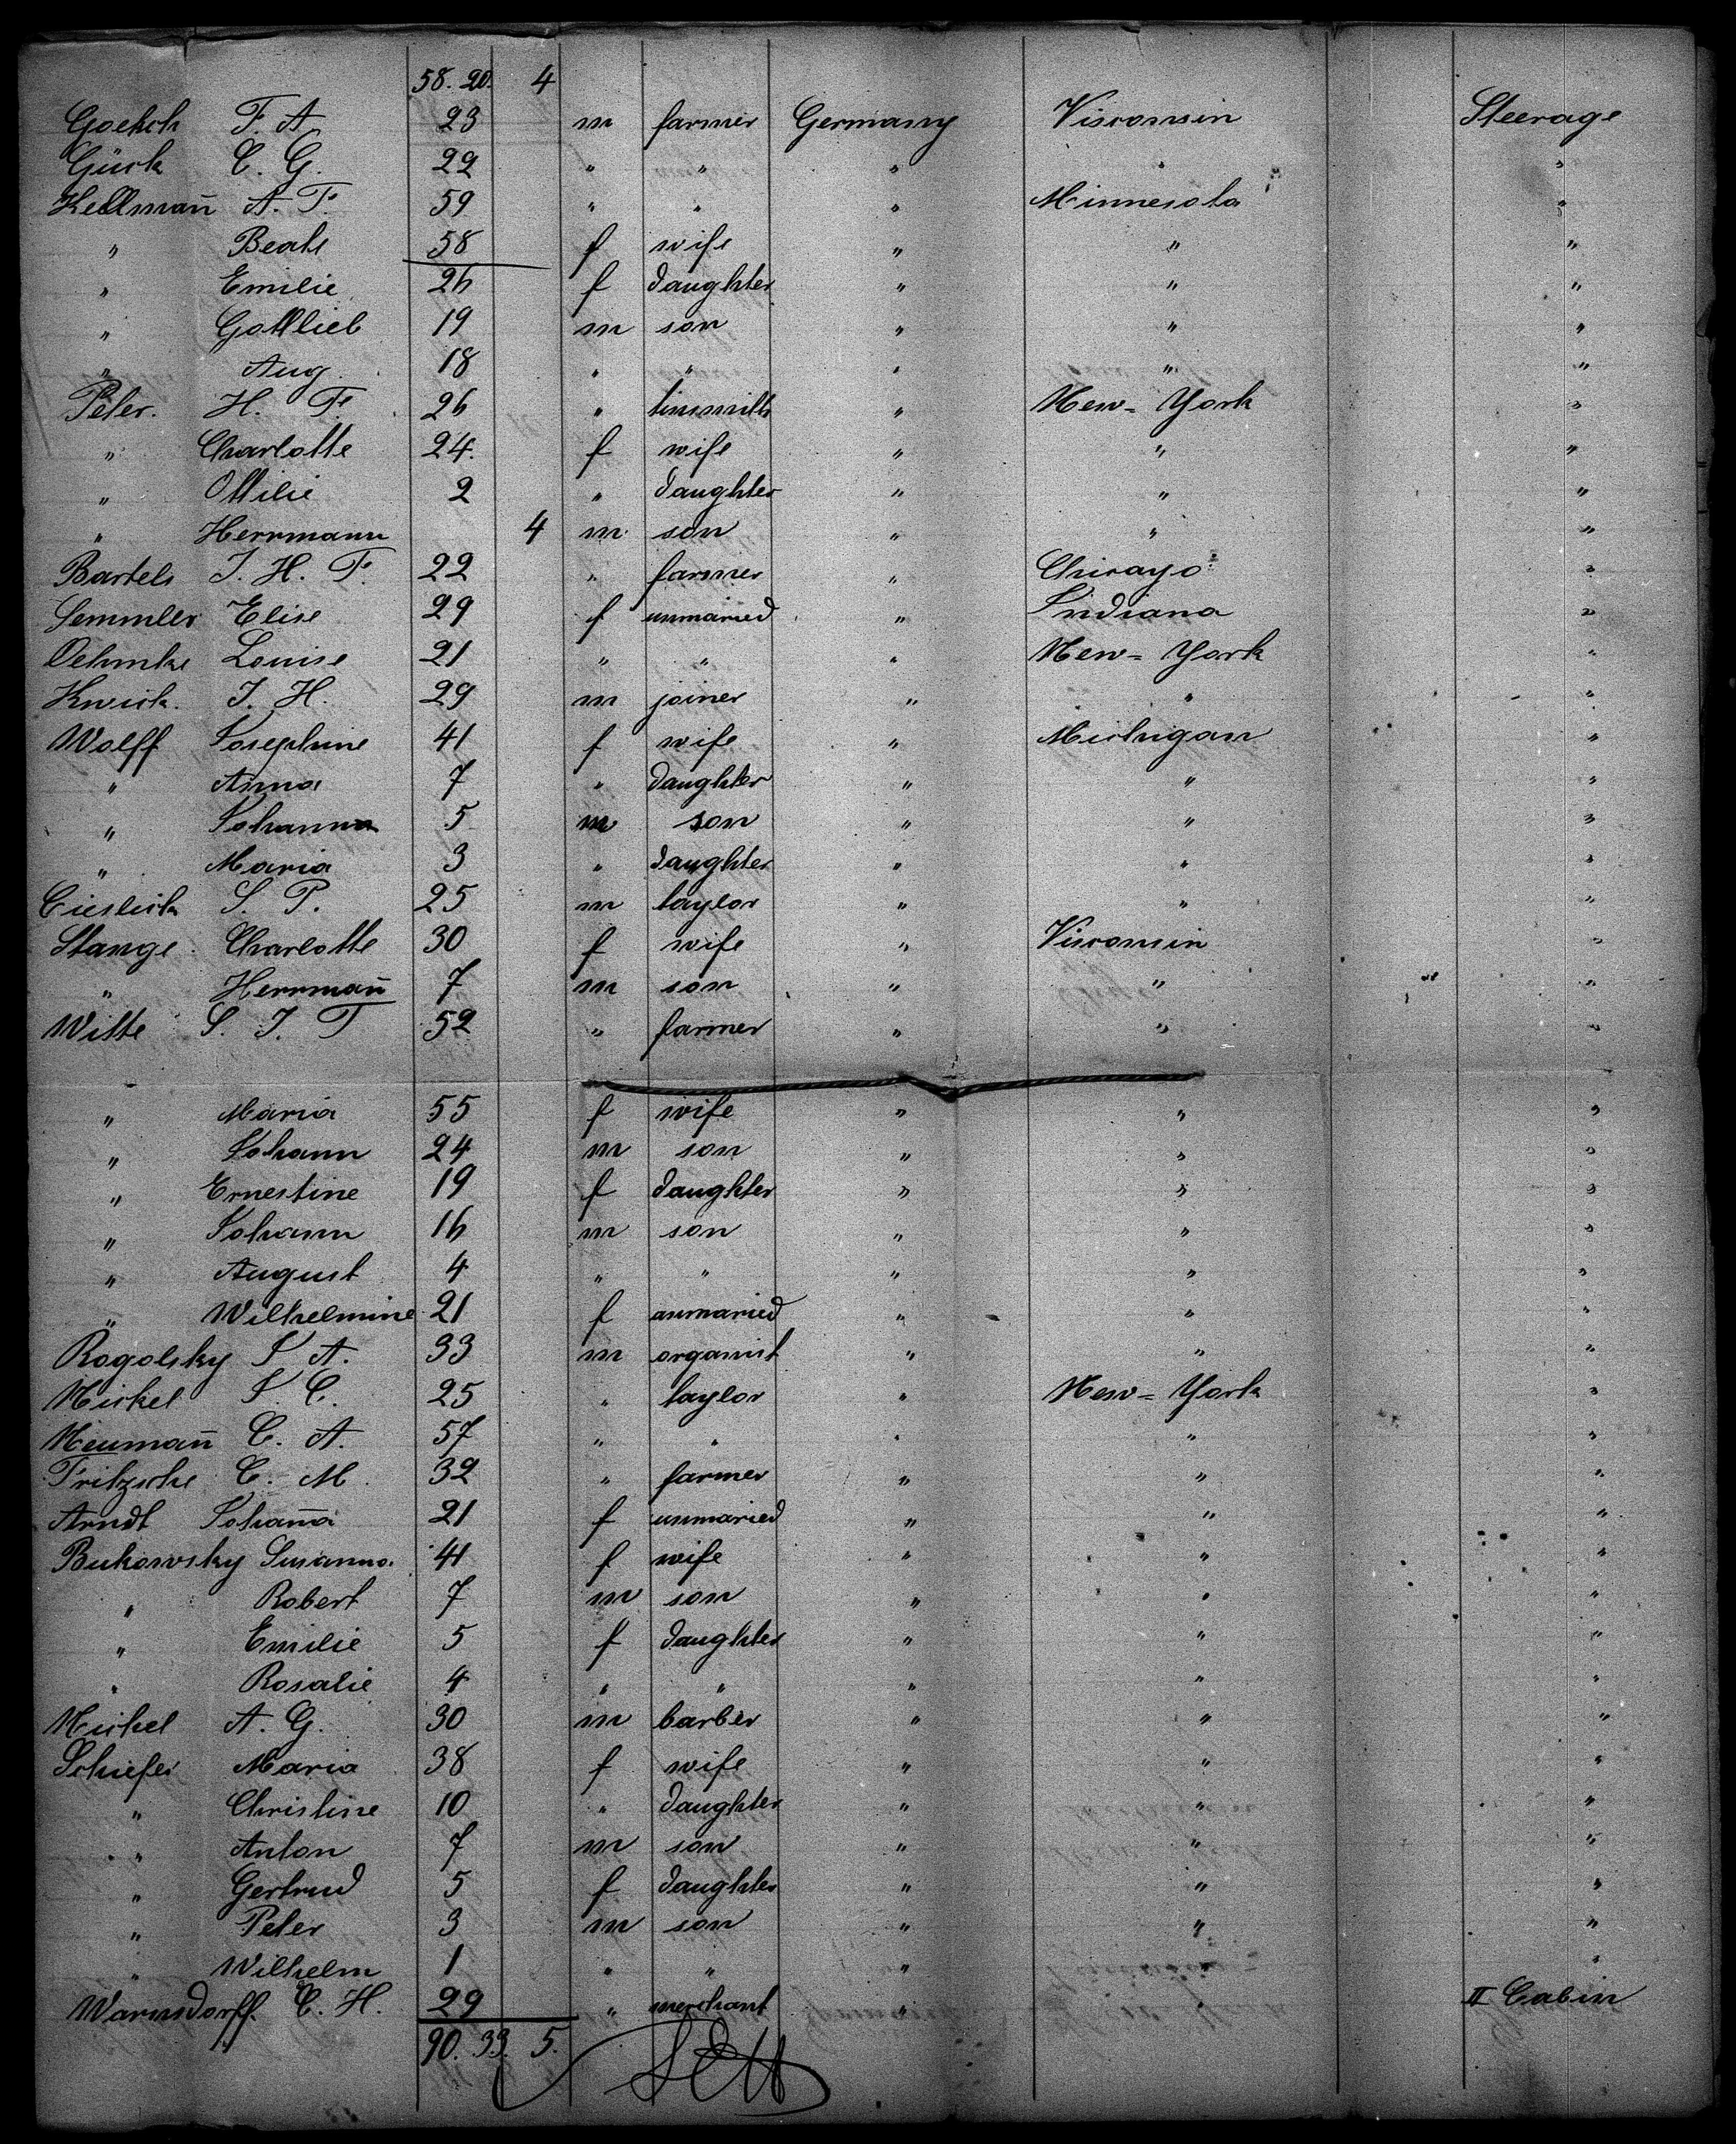 58. 20. 4
Goetsch F. A. 23 m farmer Germany Visconsin Steerage
Gürk C. G. 22 " " " " "
Kellman̄ A. F. 59 " " " Minnesota "
" Beate 58 f wife " " "
" Emilie 26 f daughter " " "
" Gottlieb 19 m son " " "
" Aug. 18 " " " " "
Peter. H. F. 26 " tinsmith " New-York "
" Charlotte 24. f wife " " "
" Ottilie 2 " daughter " " "
" Herrmann 4 m son " " "
Bartels J. H. F. 22 " farmer " Chicago "
Semmler Elise 29 f unmaried " Indiana "
Oehmke Louise 21 " " " New-York "
Kwick. J. H. 29 m joiner " " "
Wolff Josephine 41 f wife " Michigan "
" Anna 7 " daughter " " "
" Johann 5 m son " " "
" Maria 3 " daughter " " "
Cieslick J. P. 25 m taylor " " "
Stange Charlotte 30 f wife " Visconsin "
" Herrman̄ 7 m son " " "
Witte J. J. F 52 " farmer " " "
" Maria 55 f wife " " "
" Johann 24 m son " " "
" Ernestine 19 f daughter " " "
" Johann 16 m son " " "
" August 4 " " " " "
" Wilhelmine 21 f unmaried " " "
Rogolsky J A. 33 m organist " " "
Nickel J. C. 25 " taylor " New-York "
Neuman̄ C. A. 57 " " " " "
Fritzsche C. M. 32 " farmer " " "
Arndt Johan̄a 21 f unmaried " " "
Bukowsky Susanna 41 f wife " " "
" Robert 7 m son " " "
" Emilie 5 f daughter " " "
" Rosalie 4 " " " " "
Nickel A. G. 30 m barber " " "
Schiefer Maria 38 f wife " " "
" Christine 10 " daughter " " "
" Anton 7 m son " " "
" Gertrud 5 f daughter " " "
" Peter 3 m son " " "
" Wilhelm 1 " " " " "
Warmsdorff. C. H. 29 " merchant " " II Cabin
90. 33. 5.